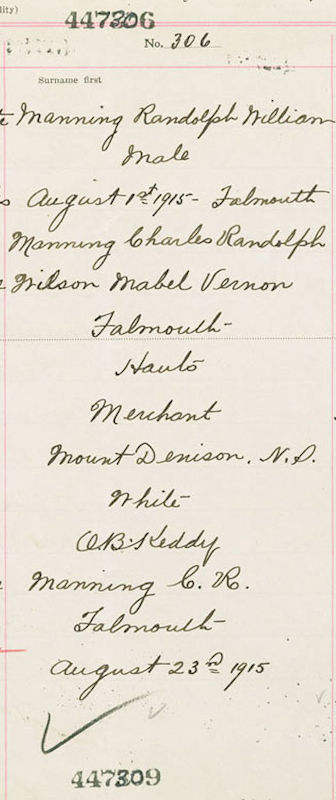 447306
No. 306
Surname first
Manning Randolph William
Male
August 1st 1915 - Falmouth
Manning Charles Randolph
Wilson Mabel Vernon
Falmouth
Hants
Merchant
Mount Denison, N.S.
White
O.B. Keddy
Manning C. R.
Falmouth
August 23rd 1915
447309